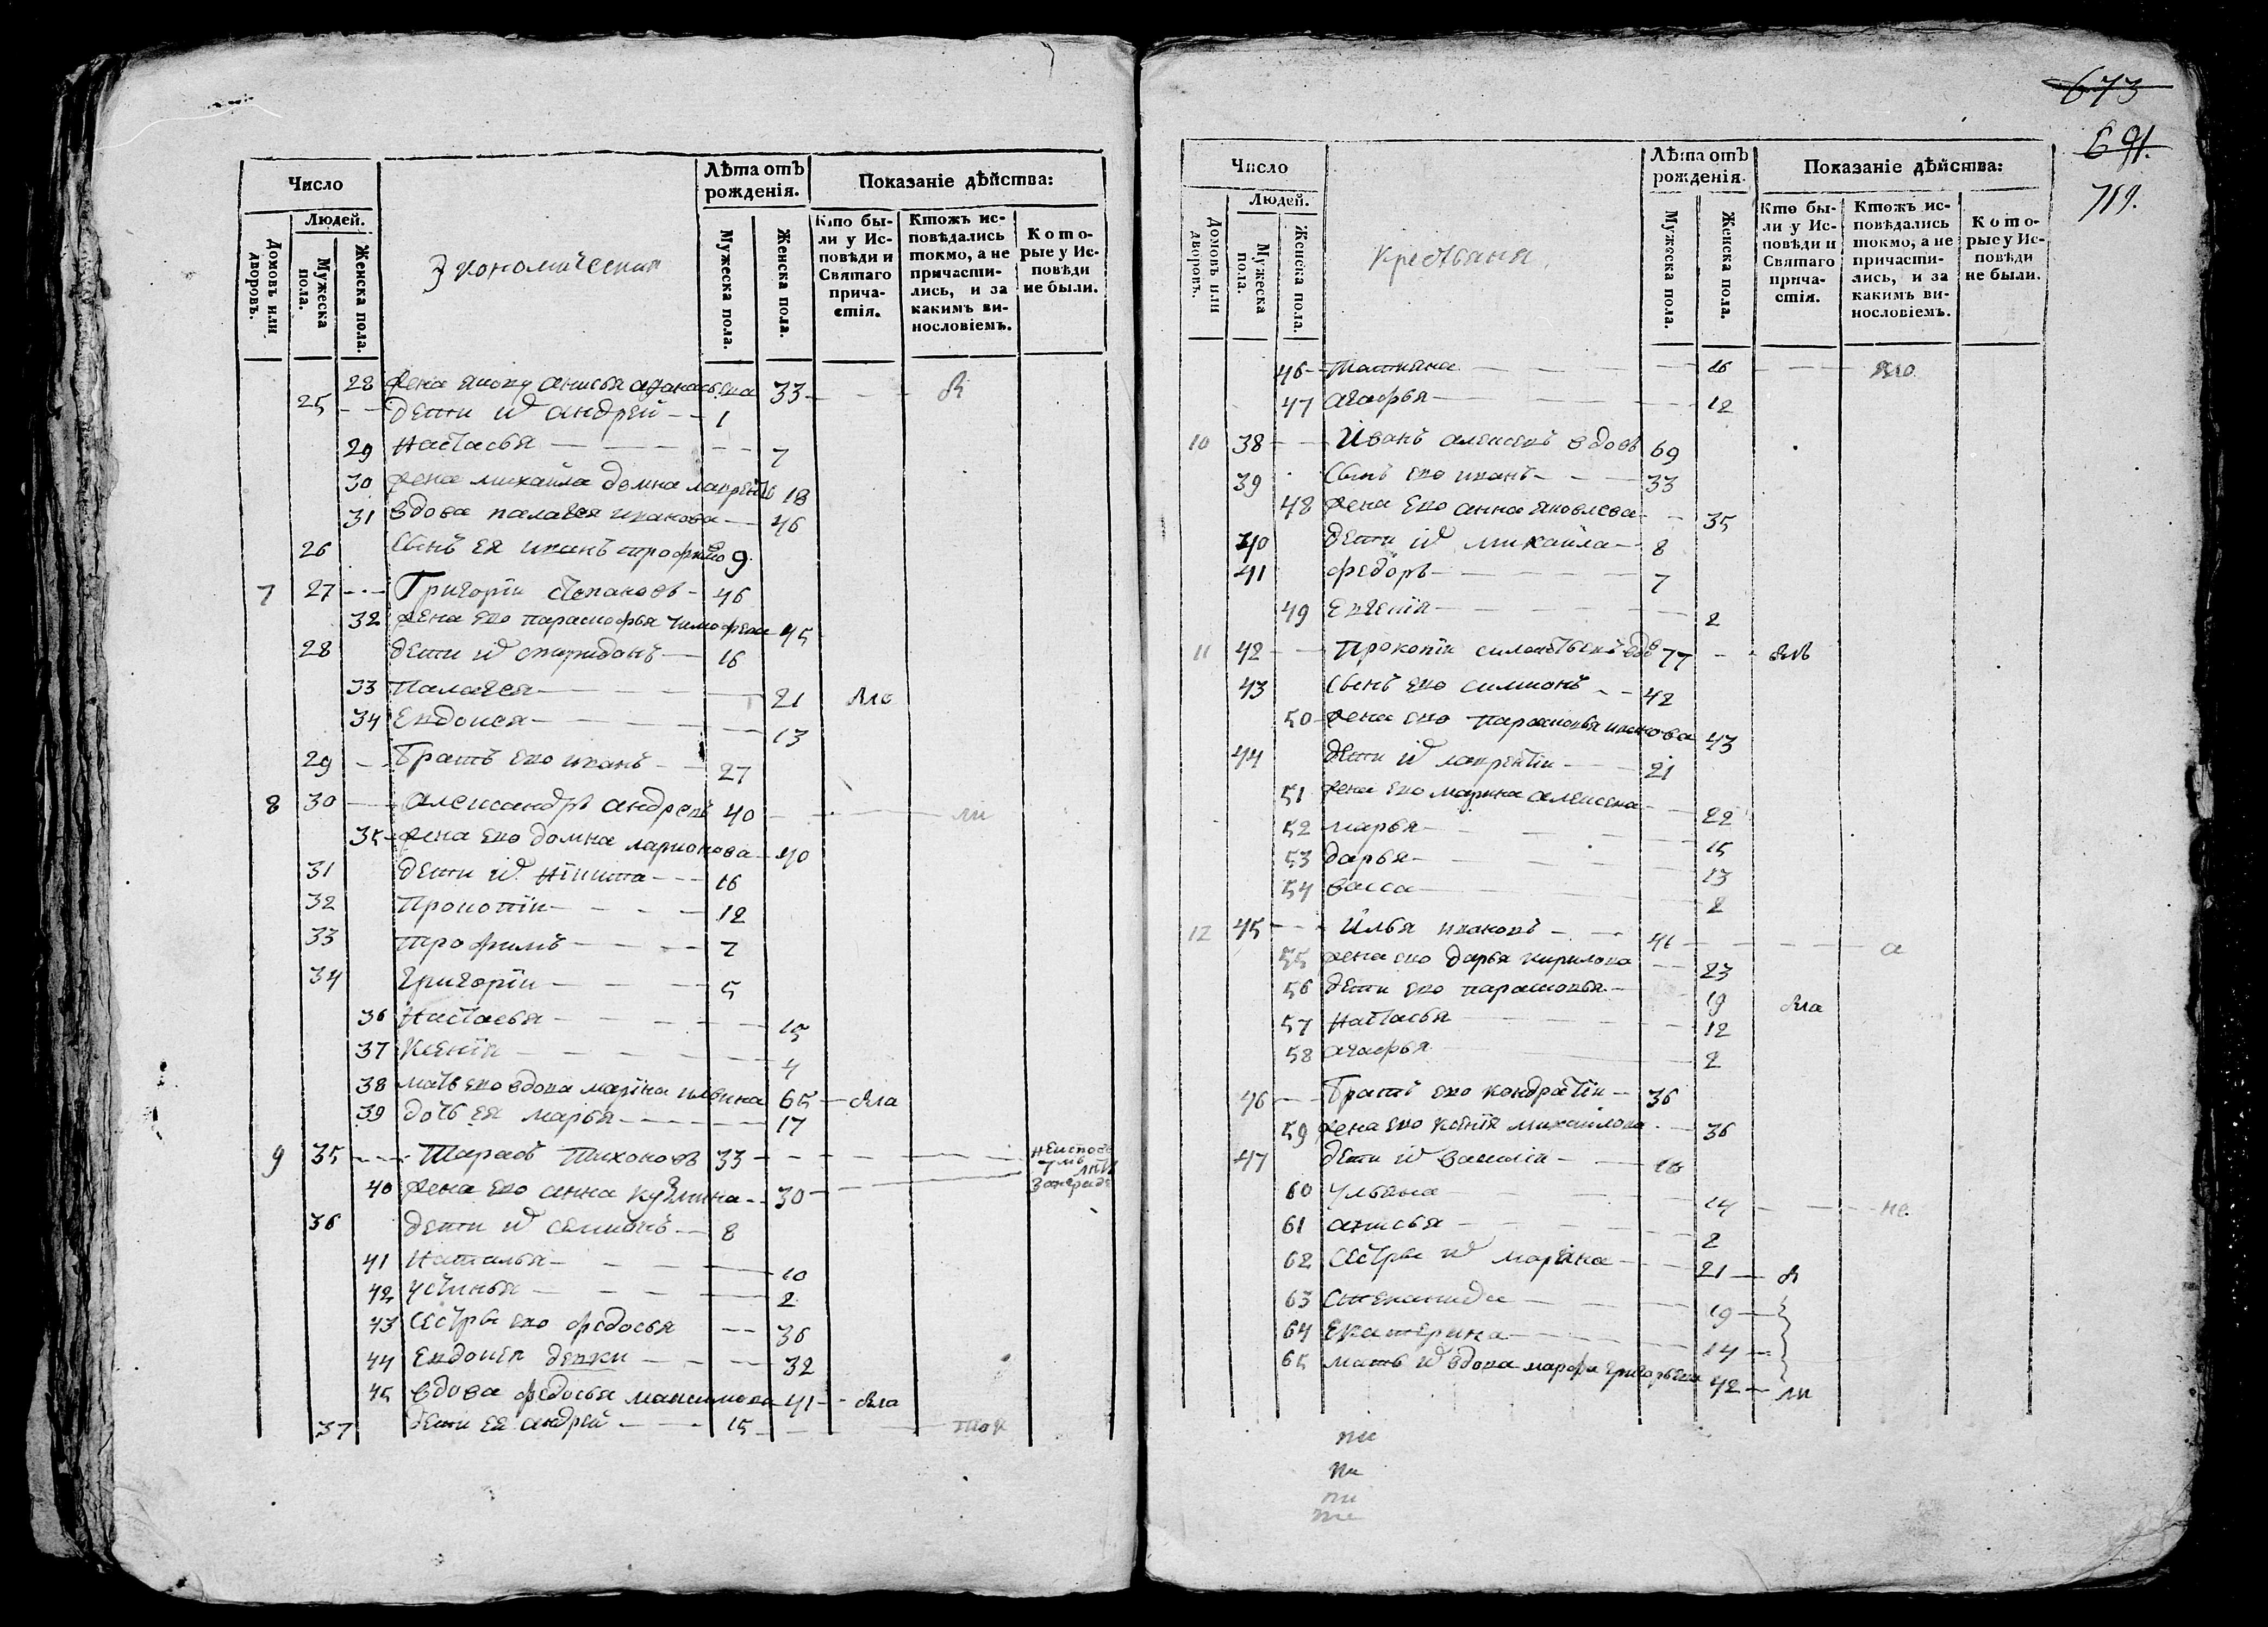 673
691.
719.
Число
Людей.
Домовъ или дворовъ.
Мужеска пола.
Женска пола.
Экономическия
Лѣта отъ рожденія.
Мужеска пола.
Женска пола.
Показаніе дѣйства:
Кто бы-
ли у Ис-
повѣди и
Святаго
прича-
стія.
Ктожъ ис-
повѣдались
токмо, а не
причасти-
лись, и за
какимъ ви-
нословіемъ.
Кото-
рые у Ис-
повѣди
не были.
28 жена анисья афанасьева 33
25 дети андрей 1
29 настасья 7
30 жена михаила домна 18
31 вдова палагея иванова 46
26 сынъ ея иванъ 9
7 27 Григорїи степановъ 46
32 жена ево парасковья тимофеева 45
28 дети спиридонъ 16
33 палагея 21
34 евдокея 13
29 братъ ево иванъ 27
8 30 александръ андреевъ 40
35 жена ево домна ларионова 40
31 дети никита 16
32 прокопїи 12
33 трофимъ 7
34 григорїи 5
36 настасья 15
37 ксенїя 4
38 мать ево вдова марїна ильина 65
39 дочь ея марья 17
9 35 Тарасъ Тихоновъ 33
40 жена ево анна кузмина 30
36 дети семионъ 8
41 наталья 10
42 устинья 2
43 сестры ево федосья 36
44 евдокея девки 32
45 вдова федосья максимова 41
37 дети ея андрей 15 ток
Число
Людей.
Домовъ или дворовъ.
Мужеска пола.
Женска пола.
Крестьяня
Лѣта отъ рожденія.
Мужеска пола.
Женска пола.
Показаніе дѣйства:
Кто бы-
ли у Ис-
повѣди и
Святаго
прича-
стія.
Ктожъ ис-
повѣдались
токмо, а не
причасти-
лись, и за
какимъ ви-
нословіемъ.
Кото-
рые у Ис-
повѣди
не были.
46 Татияна 16
47 агафья 12
10 38 Иванъ алексеевъ вдовъ 69
39 сынъ ево иванъ 33
48 жена ево анна яковлева 35
40 дети михаила 8
41 федоръ 7
49 евгенїя 2
11 42 Прокопїи 77
43 сынъ ево симионъ 42
50 жена ево парасковья иванова 43
44 дети лаврентїи 21
51 жена ево марина алексеева 22
52 марья 15
53 дарья 13
54 васса 2
12 45 Илья ивановъ 41
55 жена ево дарья кирилова 23
56 дети ево парасковья 19
57 настасья 12
58 агафья 2
46 братъ ево кондратїи 36
59 жена ево ксенїя михаилова 36
47 дети василїи 16
60 ульяна 14 не
61 анисья 2
62 сестры марїна 21
63 степанида 19
64 екатерина 14
65 мать вдова марфа григорьева 42 ли